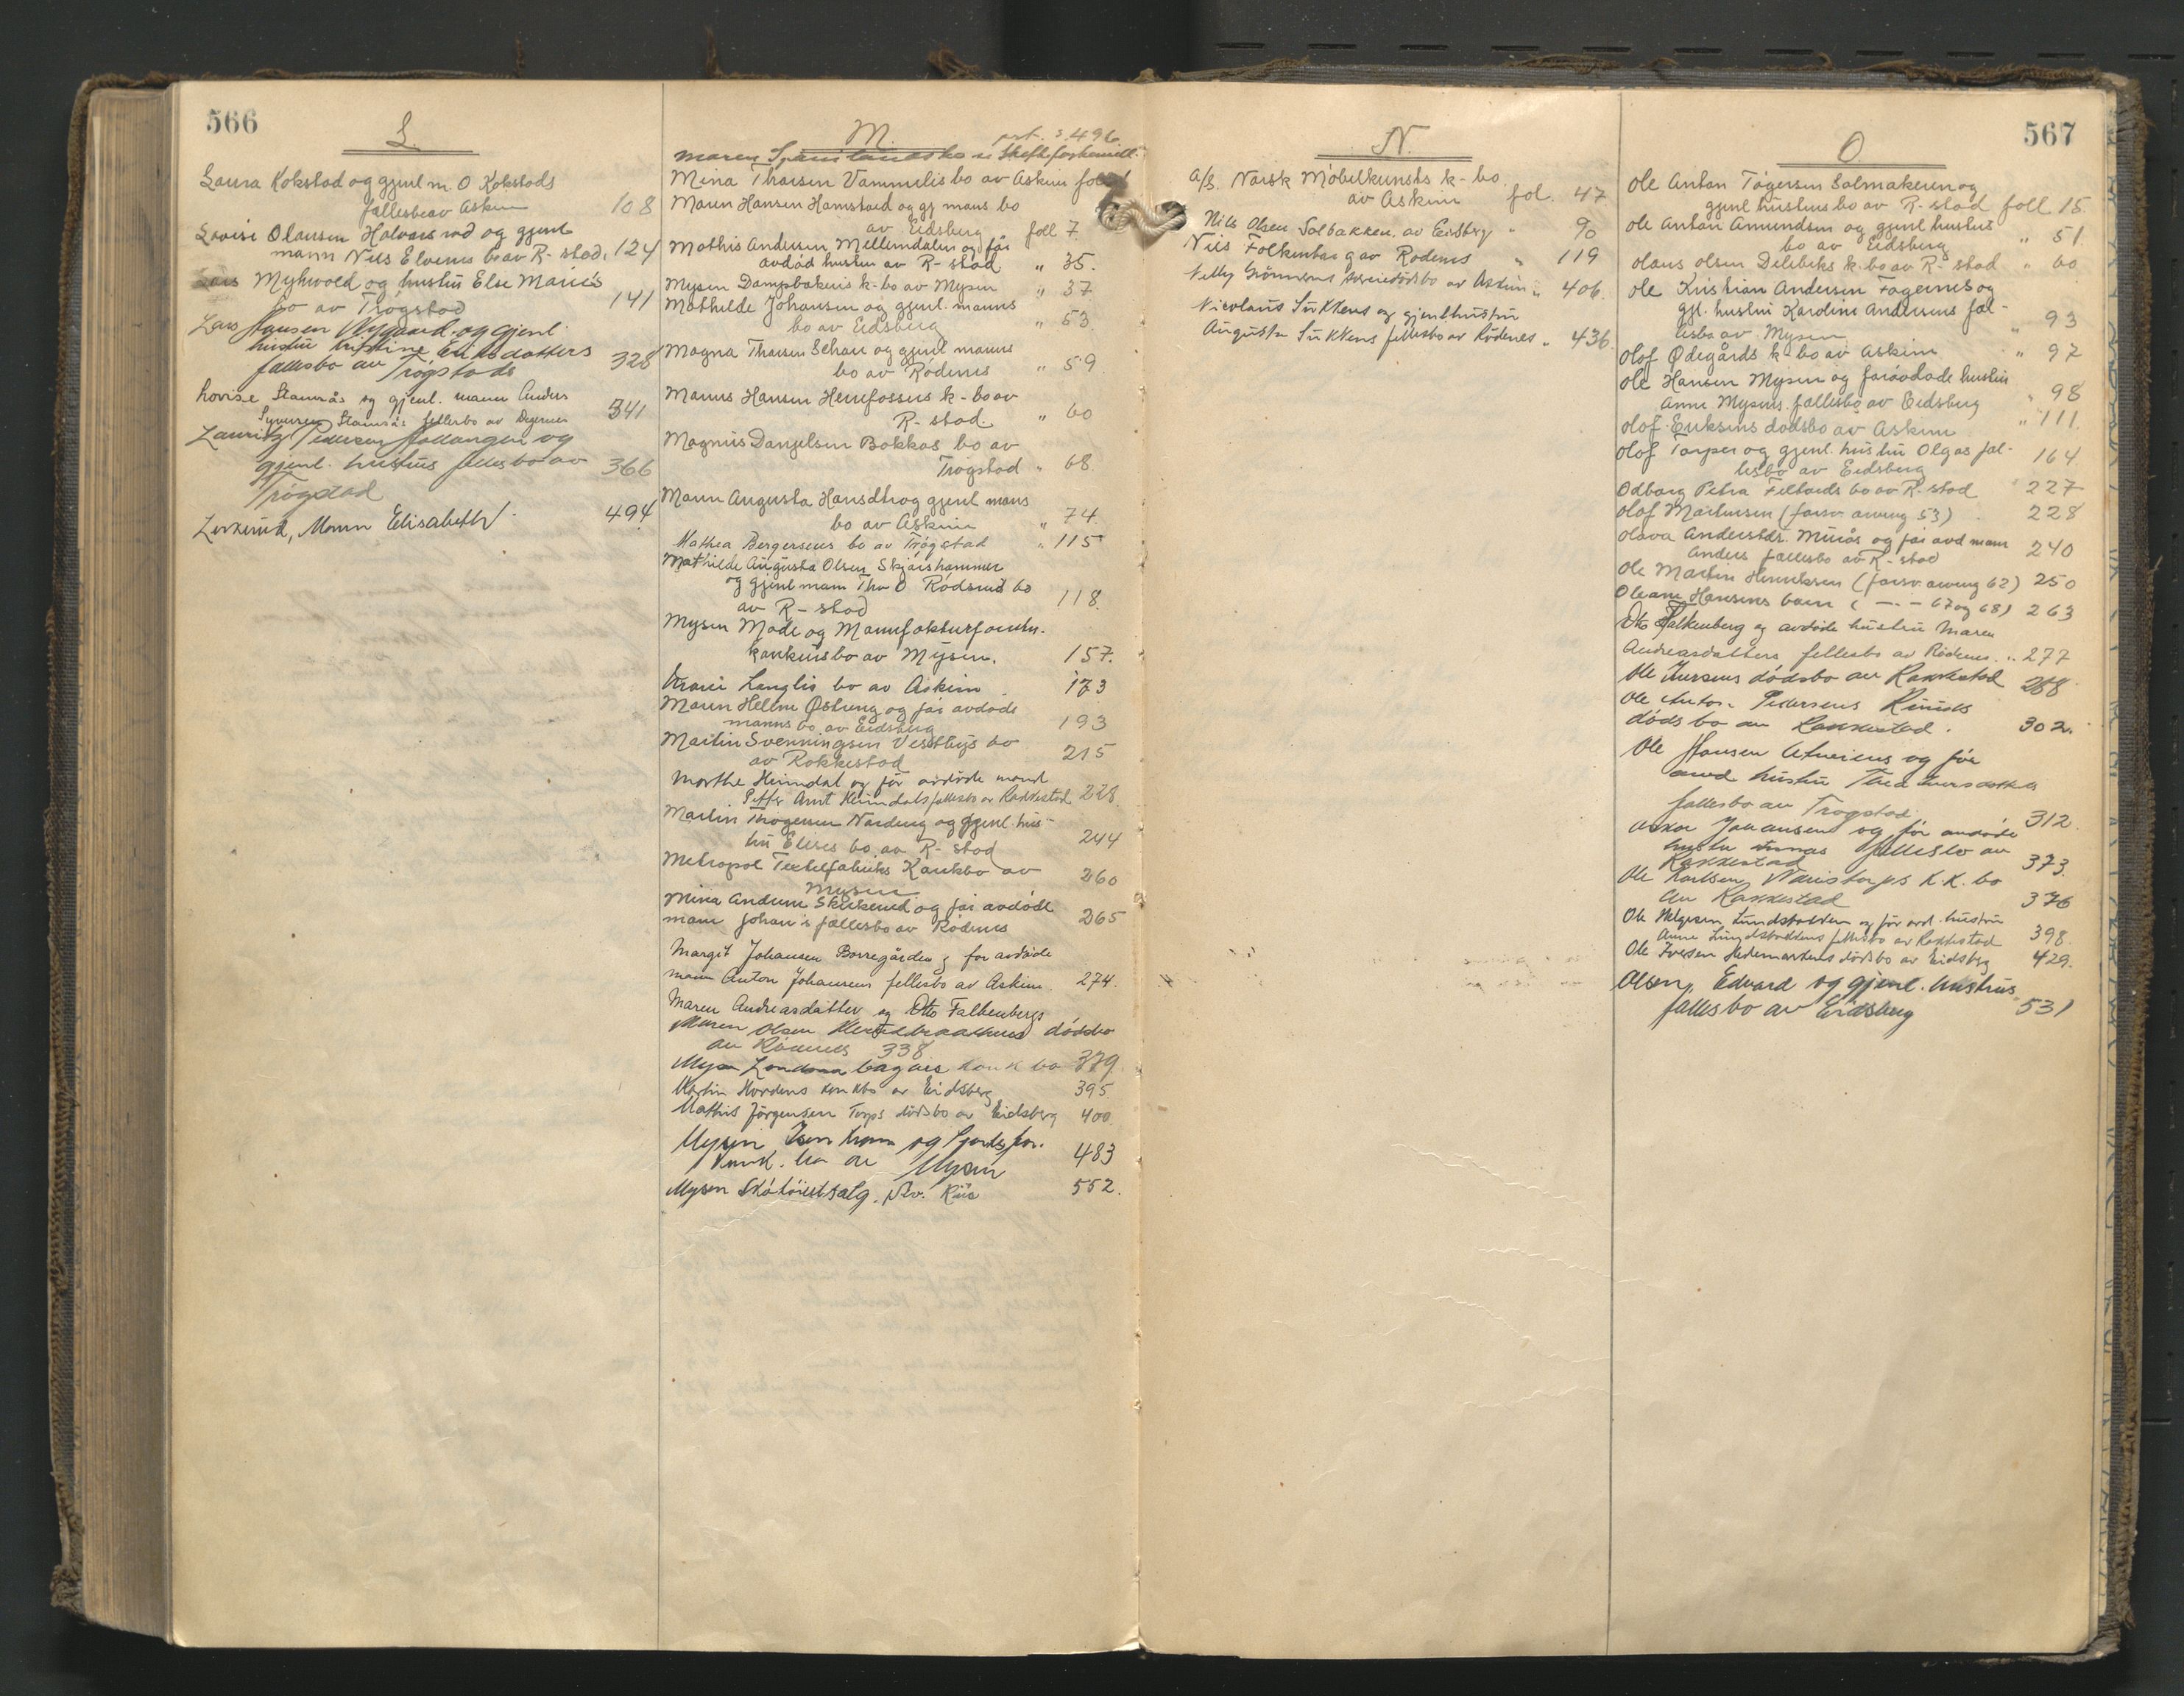 566
L.
Laura Kokstad og gjenl m. O Kokstads
fallesbo av Askim 108
Lovise Olausen Halvorsrød og gjenl
mann Nils Elvenes bo av R-stad. 124
Lars Myhrvold og hustru Else Maries
bo av Trøgstad 141
Lars Hansen Nygaard og gjenl.
hustru Kristine Eriksdatters
fallesbo av Trøgstad 328
Lovise Stamnås og gjenl. mann Anders
Syversen Stamnås fellesbo av Degernes 341
Lauritz Pedersen Hollangen og
gjenl. hustrus fellesbo av 366
Trøgstad
Lerkerud, Maren Elisabeth 494
M. prt. s 496
Maren bo se Skifteforhandl.
Mina Thorsen Vammelis bo av Askim fol
Maren Hansen Hamstad og gj mans bo
av Eidsberg foll 7
Mathis Andersen Mellemdalen og før
avdød hustru av R-stad " 35.
Mysen Dampbakeris k-bo av Mysen " 37
Mathilde Johansen og gjenl. manns
bo av Eidsberg " 53
Magna Thorsen Schau og gjenl manns
bo av Rødenes " 59
Manus Hansen Henefossus k-bo av
R-stad. " 60
Magnus Danjelsen Bakkas bo av
Trøgstad " 68.
Maren Augusta Hansdtr og gjenl mans
bo av Askim " 74.
Mathea Bergersens bo av Trøgstad " 115
Mathilde Augusta Olsen Skjørshammer
og gjenl mann Thv O Rødsrud bo
av R-stad 118.
Mysen Mode og Manufakturforretn.
konkursbo av Mysen. 157.
Marie Langlis bo av Askim 173
Maren Helene Østreng og før avdøde
manns bo av Eidsberg 193
Martin Svenningsen Vestbys bo
av Rakkestad 215
Marthe Heimdal og før avdøde mand
Petter Arnt Heimdals fellesbo av Rakkestad 228.
Martin Thorgersen Nordeng og gjenl. hus-
tru Elises bo av R-stad 244
Metropol Textilfabriks Konkbo av
Mysen 260
Mina Andersen Skukerud og før avdøde
mann Johan's fallesbo av Rødenes 265
Margit Johansen Borregården og for avdøde
mann Anton Johansens fellesbo av Askim. 274.
Maren Andreasdatter og Otto Falkenbergs
Maren Olsen dødsbo
av Rødenes 338
Mysen konk bo 379.
Martin Hordens konkbo av Eidsberg 395.
Mathis Jörgensen Torps dödsbo av Eidsberg 400.
Mysen Jernvare og Sportsfor.
konk. bo av Mysen 483
Mysen Skötöiutsalg, 552.
567
N.
A/S. Norsk Møbelkunsts k-bo.
av Askim fol. 47
Nils Olsen Solbakken. av Eidsberg " 90
Nils Folkenborg av Rødenes " 119
Nelly dødsbo av Askim " 406.
Nicolaus Sukkens og gjenl hustru
Augusta Sukkens fellesbo av Rödenes " 436
O.
Ole Anton Tøgersen Salmakeren og
gjenl hustrus bo av R-stad foll 15.
Ole Anton Amundsen og gjenl hustrus
bo av Eidsberg " 51.
Olaus Olsen Delebeks k. bo av R-stad " 60
Ole Kristian Andersen Fagernes og
gjl. hustru Karoline Andersens fæl-
lesbo av Mysen " 93
Olaf Ødegårds k. bo av Askim " 97
Ole Hansen Mysen og foravdøde hustru
Anne Mysens fællesbo av Eidsberg " 98
Olaf Eriksens dødsbo av Askim " 111.
Olaf Torper og gjenl. hustru Olgas fæl-
lesbo av Eidsberg 164.
Odborg Petra Feltords bo av R-stad 227
Olaf Martinsen (forsv. arving 53) 228
Olava Andersdr. Minås og før avd mann
Anders fallesbo av R-stad 240
Ole Martin Henriksen (forsv. arveng 62) 250
Oleane Hansens barn ( —.— 67 og 68) 263
Otto Falkenberg og avdøde hustru Maren
Andreasdatters fellesbo av Rödenes. " 277
Ole Iversens dødsbo av Rakkestad 288
Ole Anton Pedersens
dødsbo av Rakkestad. 302.
Ole Hansen og før
avd hustru Thea
fallesbo av Trøgstad. 312
Oskar Johansens og før avdøde
hustru Annas fellesbo av
Rakkestad 373.
Ole Karlsen Naristorps K.K. bo
av Rakkestad 376
Ole Helgesen Lundstokken og før avd. hustru
Anne Lundstokkens fellesbo av Rakkestad 398.
Ole Iversen Hedemarkens dödsbo av Eidsberg 429.
Olsen, Edvard og gjenl. hustrus
fallesbo av Eidsberg 531